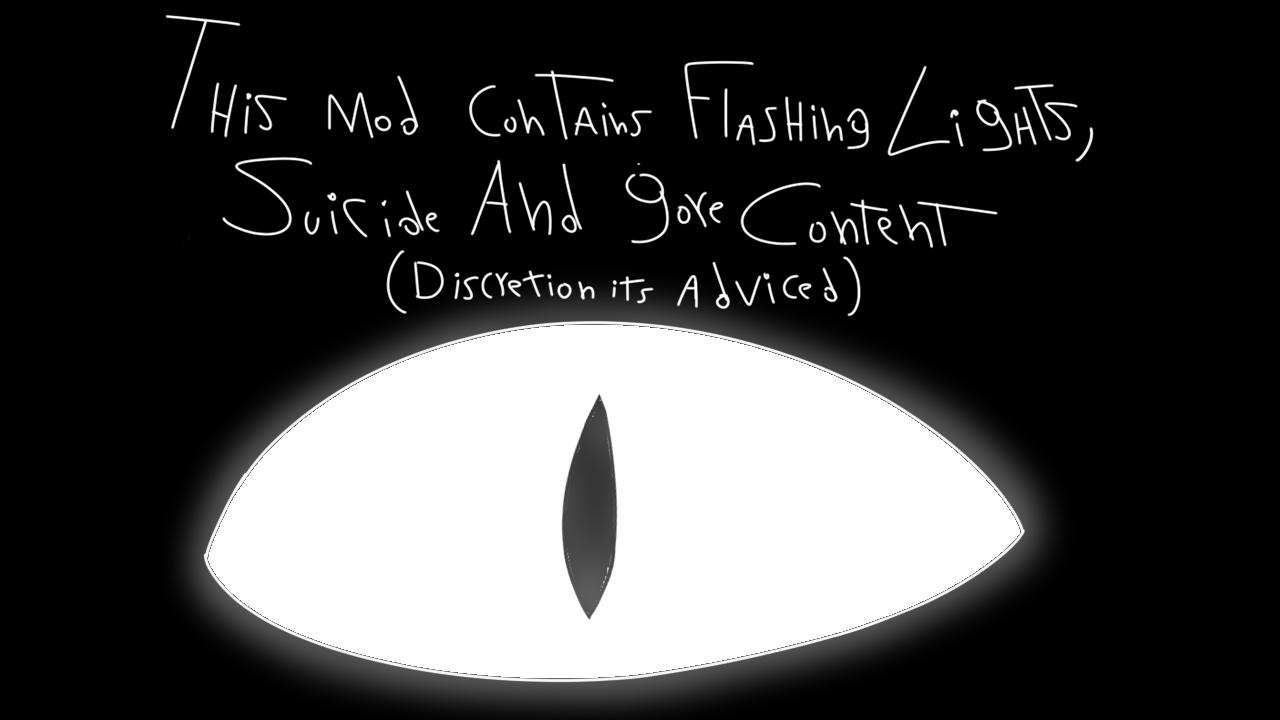 THis Mod ConTAins FlASHing LigHTS,
Suicide And gore Content
(Discretion its Adviced)